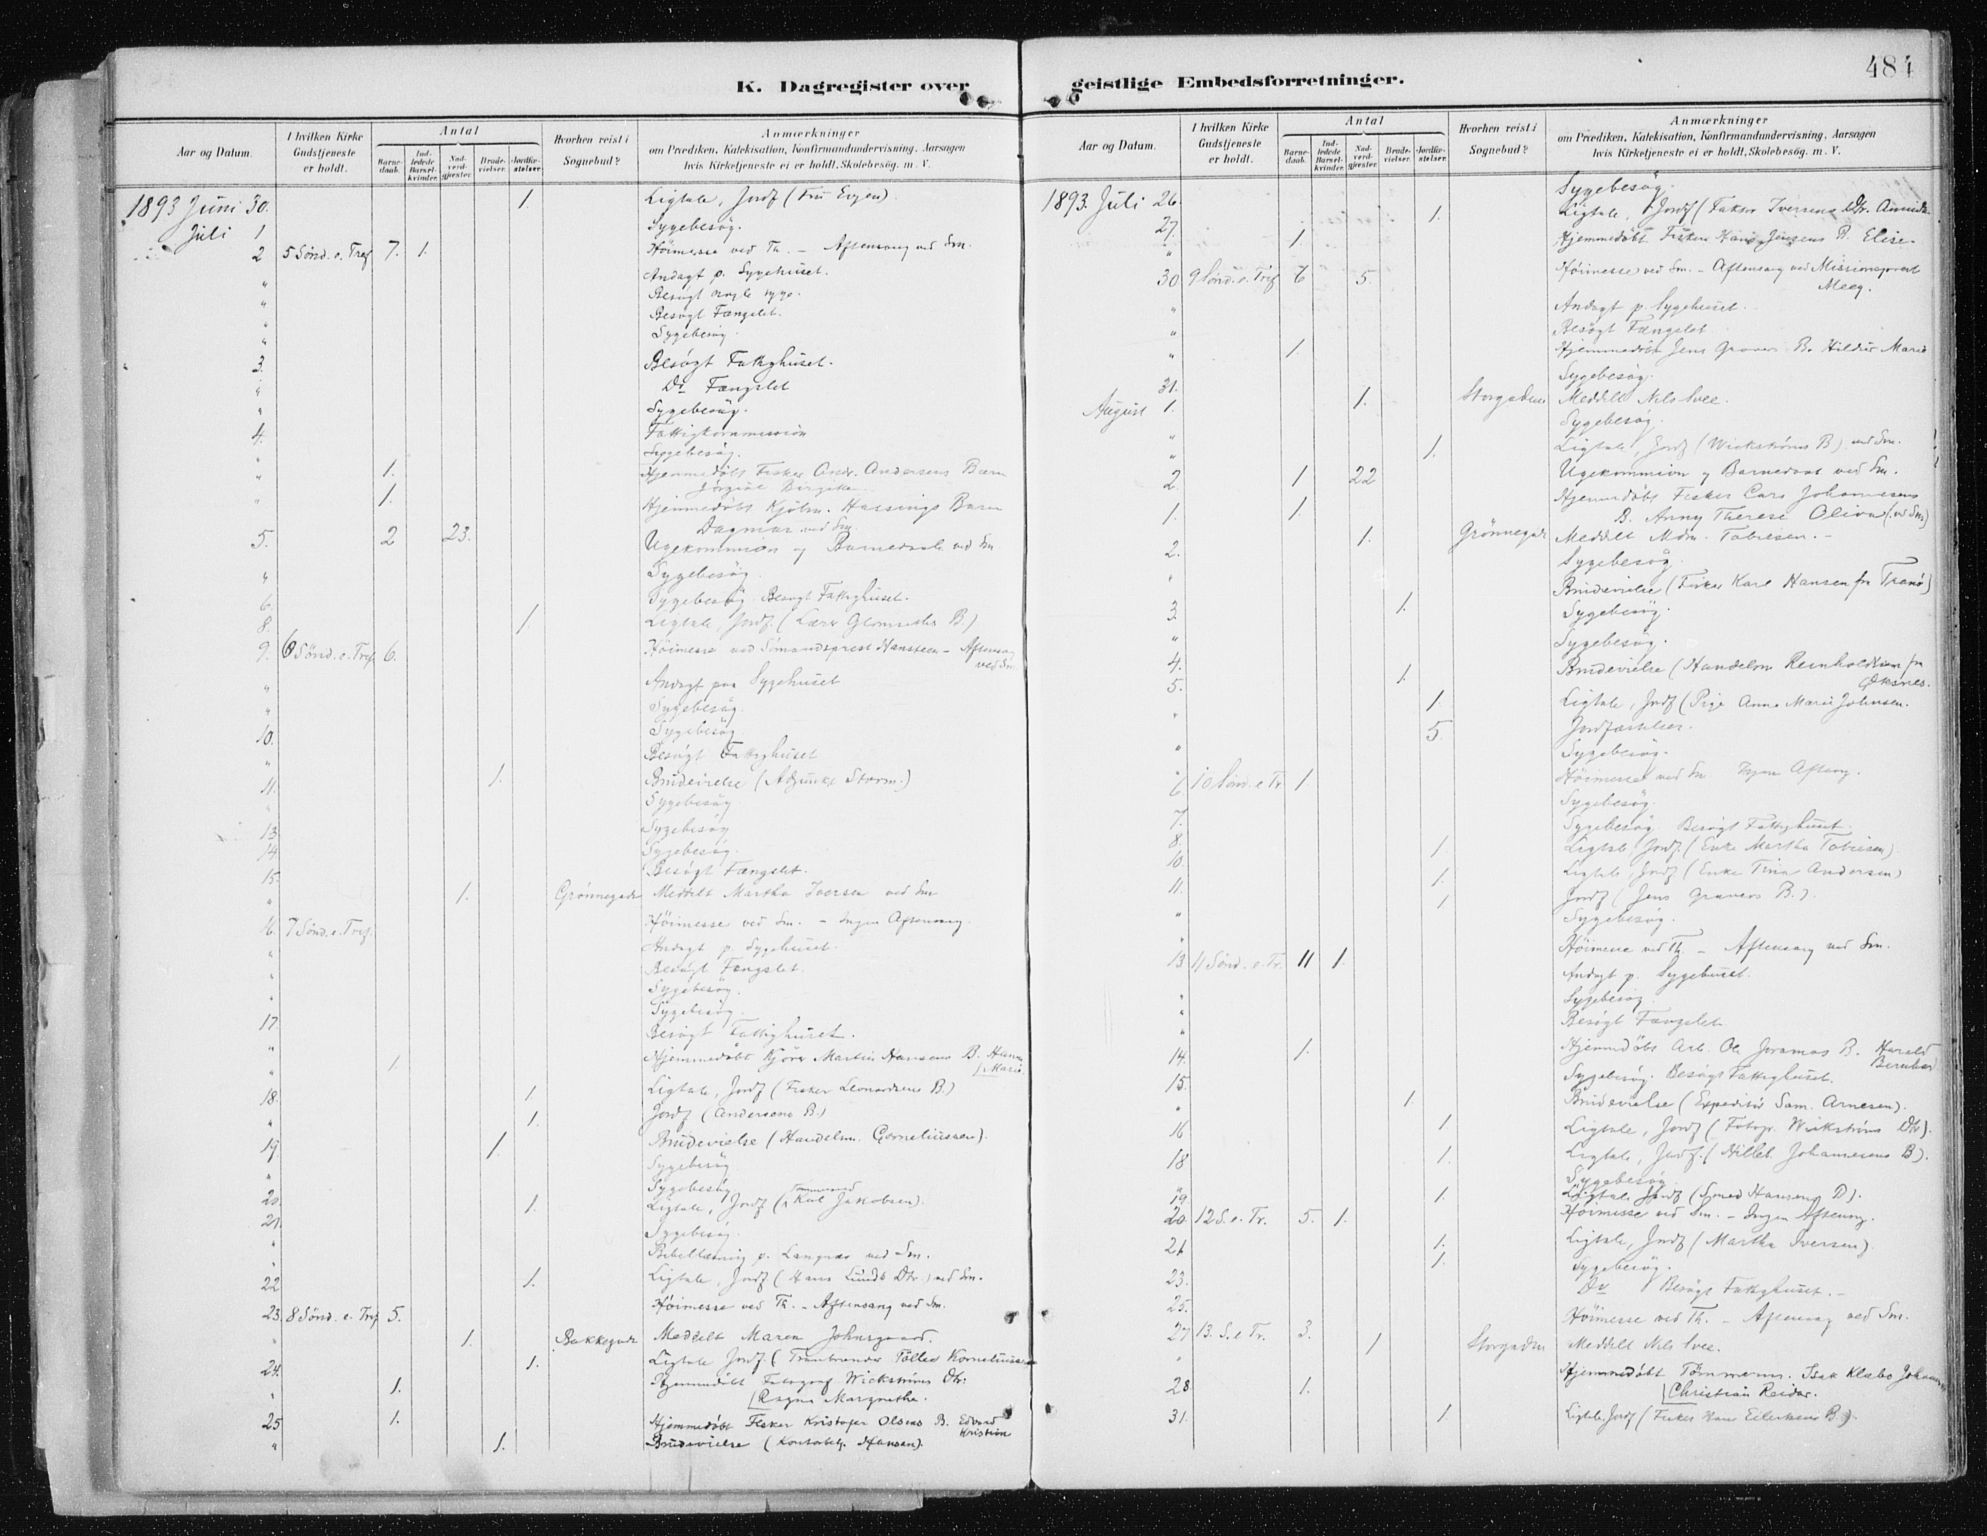 484
K. Dagregister over geistlige Embedsforretninger.
Aar og Datum.
I hvilken Kirke Gudstjeneste er holdt.
Antal
Barnedaab.
Indledede Barselkvinder.
Nadverdgjester.
Brudevielser.
Jordfæstelser.
Hvorhen reist i Sognebud?
Anmærkninger
om Prædiken, Katekisation, Konfirmandundervisning, Aarsagen
hvis Kirketjeneste ei er holdt, Skolebesøg. m. V.
1893 Juni 30. 1. Ligtale, Jordf (Fru
Juli 1 Sygebesøg.
2 5 Sønd. e. Tref 7. 1. Høimesse ved Th. – Aftensang ved Sm.
" Andagt p. Sygehuset.
" Besøgt nogle syge.
" Besøgt Fængslet.
" Sygebesøg.
3. Besøgt Fattighuset.
" Do. Fængslet
" Sygebesøg.
4. Fattigkommission
" Sygebesøg.
" 1. Hjemmedøbt Fisker Andr. Andersens Barn
" 1. Hjemmedøbt Barn
Dagmar ved Sm.
5. 2 23. Ugekommunion og Barnedaab ved Sm
" Sygebesøg.
6. Sygebesøg. Besøgt Fattighuset.
8. 1 Ligtale, Jordf. (
9. 6 Sønd. e. Tref. 6. Høimesse ved Sømandsprest Hansteen – Aftensang
ved Sm.
" Andagt paa Sygehuset
" Sygebesøg.
10. Sygebesøg
" Besøgt Fattighuset
11. 1. Brudevielse (Adjunkt Storm.)
" Sygebesøg
13. Sygebesøg
14 Sygebesøg.
15. Besøgt Fængslet.
" 1. Grønnegade Meddelt Martha Iversen ved Sm
16. 7 Sønd. e. Tref. Høimesse ved Sm. – Ingen Aftensang.
" Andagt p. Sygehuset.
" Besøgt Fængslet.
" Sygebesøg.
" Sygebesøg.
17 Besøgt Fattighuset.
" 1. Hjemmedøbt Martin Hansens B. Hanna
Marie.
18. 1. Ligtale, Jordf (Fisker Leonardsens B.)
" 1. Jordf (Andersens B.)
19. 1 Brudevielse (Handelsm. Corneliussen).
" Sygebesøg
" Sygebesøg
20. 1. Ligtale, Jordf (Karl Jakobsen).
21. Sygebesøg.
" Bibellæsning p. Langnæs ved Sm.
22 1. Ligtale, Jordf (Hans Lunds Dtr.) ved Sm.
23. 8 Sønd. e. Tref 5. Høimesse ved Th. – Aftensang ved Sm.
" 1. Bakkegade Meddelt Maren Johnsgaard.
24. 1. Ligtale Jordf. (Tranbrænder Kornelius
" 1. Hjemmedøbt Fotograf Wickstrøms Dtr.
Ragna Margrethe.
25 1. Hjemmedøbt Fisker Kristofer Olsens B. Edvard
Kristian
" 1. Brudevielse (Kontorbetj. Hansen).
Aar og Datum.
I hvilken Kirke Gudstjeneste er holdt.
Antal
Barnedaab.
Indledede Barselkvinder.
Nadverdgjester.
Brudevielser.
Jordfæstelser.
Hvorhen reist i Sognebud?
Anmærkninger
om Prædiken, Katekisation, Konfirmandundervisning, Aarsagen
hvis Kirketjeneste ei er holdt, Skolebesøg. m. V.
1893. Juli 26. Sygebesøg.
27. 1. Ligtale, Jordf (Iversens Dtr.
" 1. Hjemmedøbt Fisker Hans Jensens B. Elise.
30. 9 Sønd. e. Tref 6 5. Høimesse ved Sm. – Aftensang ved Missionsprest
Meeg.
" Andagt p Sygehuset.
" Besøgt Fængslet
" 1. Hjemmedøbt Jens Gravers B. Hildur Marie
31. Sygebesøg.
August 1. 1. Storgaden Meddelt Nils Svee.
" Sygebesøg.
" 1. Ligtale, Jordf (Wickstrøms B) ved Sm.
2. 1 22 Ugekommunion og Barnedaab ved Sm.
1. 1. Hjemmedøbt Fisker Johannesens
B. Anny Therese Oliva (ved Sm)
2. 1. Grønnegade Meddelt Mdm. Tobiesen. –
" Sygebesøg.
3. 1. Brudevielse (Fisker Karl Hansen fra Tranø)
" Sygebesøg.
4. Sygebesøg.
5. 1. Brudevielse (Handelsm Reinholdtsen fra
Øksnes.
" 1 Ligtale, Jordf (Pige Anne Marie Johnsen.
" 5. Jordfæstelser.
" Sygebesøg.
6 10 Sønd. e Tr. 1. Høimesse ved Sm Ingen Aftensang.
7. Sygebesøg.
8. Sygebesøg. Besøgt Fattighuset.
10. 1 Ligtale Jordf. (Enke Martha Tobiesen)
11. 1. Ligtale, Jordf (Enke Tina Andersen)
" 1 Jordf (Jens Gravers B.).
" Sygebesøg.
13 11 Sønd. e. Tr. 11 1. Høimesse ved Th. – Aftensang ved Sm.
" Andagt p. Sygehuset.
" Sygebesøg.
" Besøgt Fængslet
14. 1. Hjemmedøbt Arb. Ole B. Harald
Bernhard
15. Sygebesøg. Besøgt Fattighuset.
" 1 Brudevielse (Expeditør Sam. Arnesen).
16 1. Ligtale, Jordf (Fotogr. Wickstrøms Dtr).
18 1. Ligtale, Jordf. (Johannesens B).
" Sygebesøg
19. 1. Ligtale Jordf (Smed Hansens D).
20. 12 S. e. Tr. 5. 1. Høimesse ved Sm. – Ingen Aftensang.
21 1. Ligtale, Jordf (Martha Iversen).
23. 1. Sygebesøg.
25. Do Besøgt Fattighuset. –
27 13. S. e Tr. 3. Høimesse ved Th. – Aftensang ved Sm.
" 1 Storgaden Meddelt Nils Svee.
28 1. Hjemmedøbt Tømmerm. Isak Klæbo
Christian Reidar.
31. 1 Ligtale, Jordf (Fisker Hans Eilertsens B.).